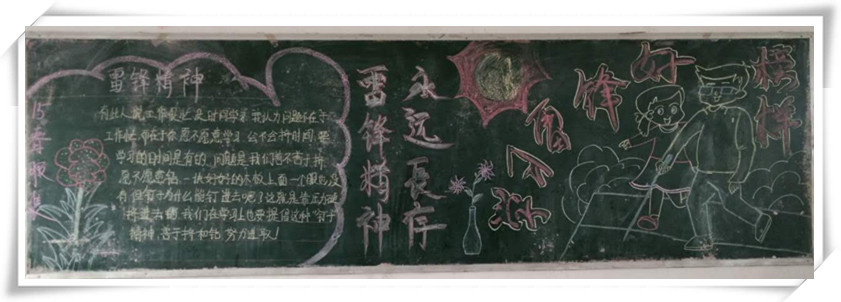 15春
雷锋精神
有些人说工作忙,没时间学习,我认为问题不在于
工作忙,而在于你愿不愿意学习,会不会挤时间,要
学习的时间是有的,问题是我们善不善于挤,
愿不愿意钻。一块好好的木板,上面一个眼也没
有,但钉子为什么能钉进去呢?这就是靠压力硬
挤进去的,我们在学习上也要提倡这种“钉子”
精神,善于挤和钻,努力进取!
雷锋精神
永远长存
学习雷锋好榜样